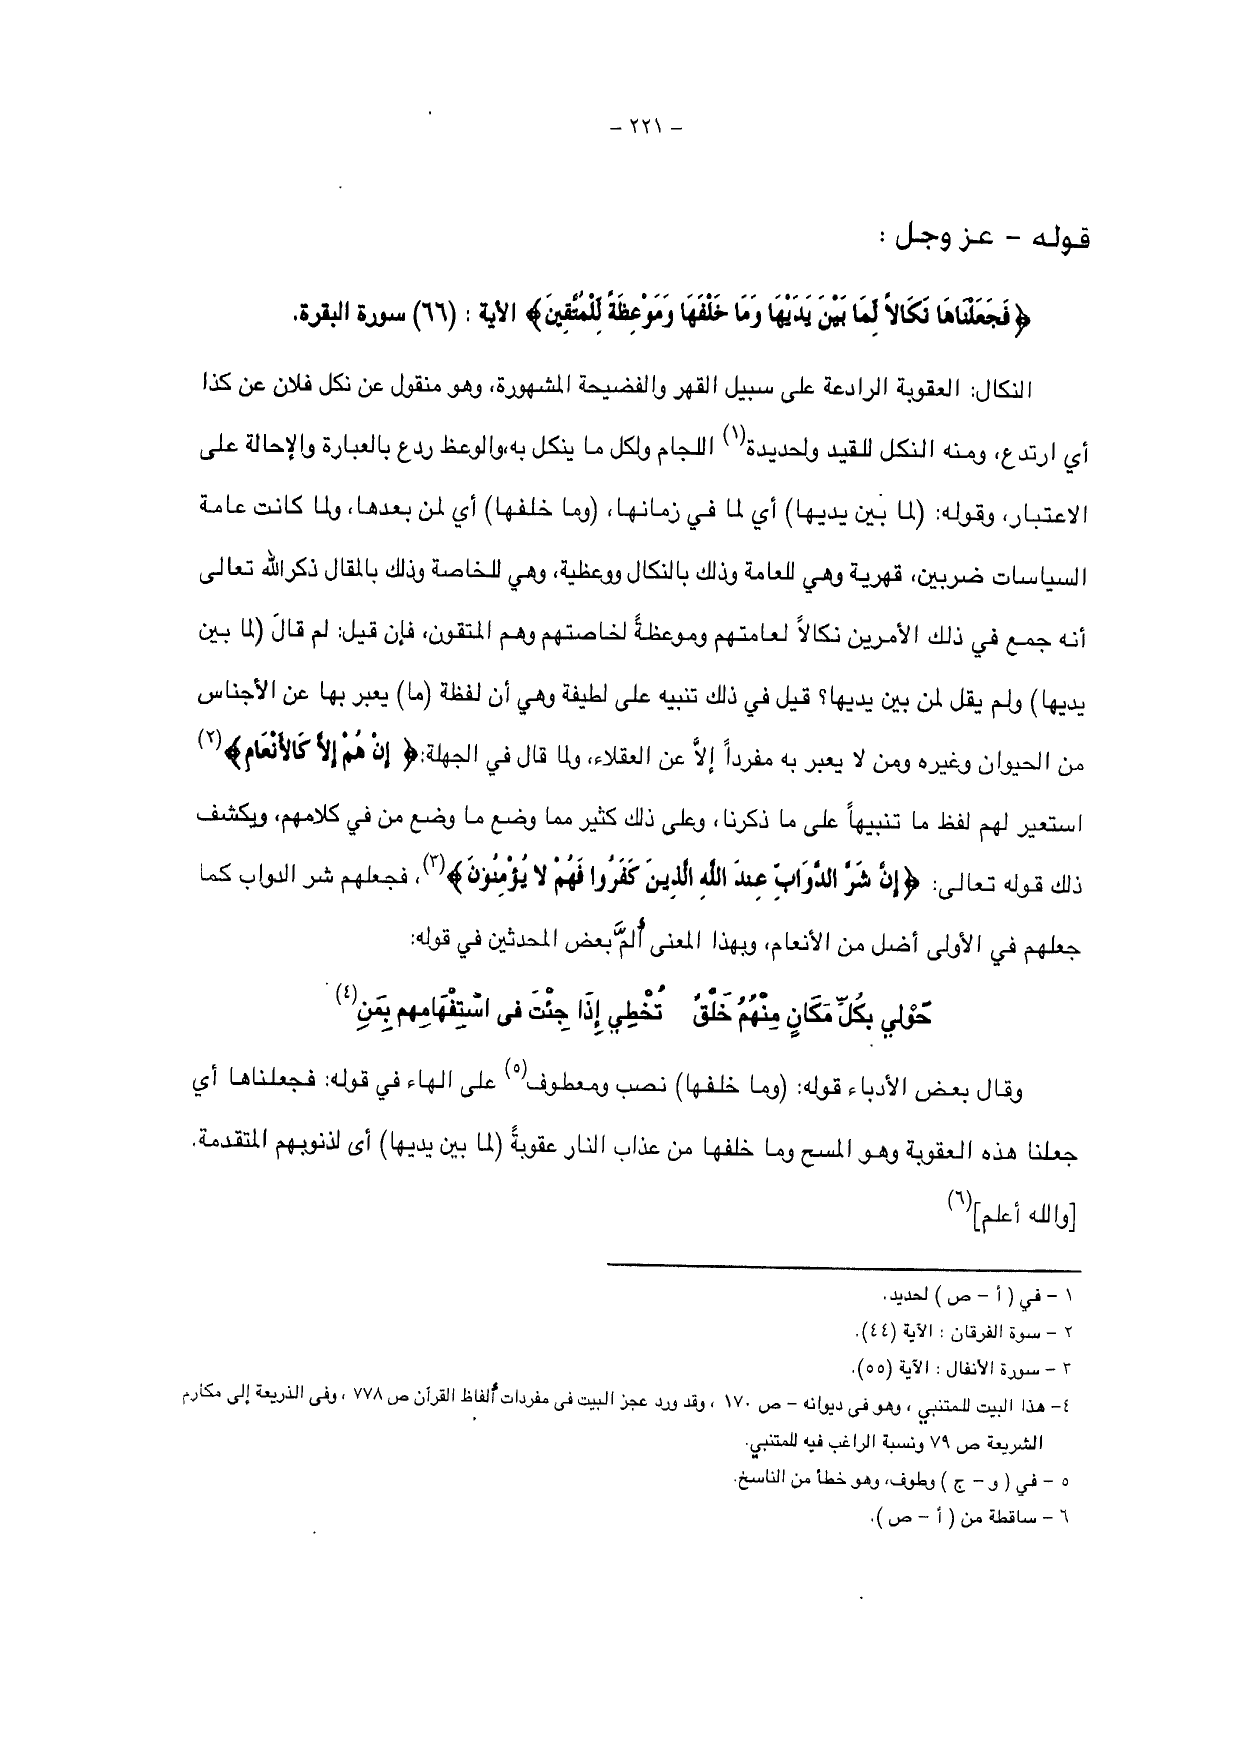 – ٢٢١ –
قوله – عز وجل :
﴿ فَجَعَلْنَاهَا نَكَالاً لِّمَا بَيْنَ يَدَيْهَا وَمَا خَلْفَهَا وَمَوْعِظَةً لِّلْمُتَّقِينَ﴾ الآية : (٦٦) سورة البقرة.
النكال: العقوبة الرادعة على سبيل القهر والفضيحة المشهورة، وهو منقول عن نكل فلان عن كذا
أي ارتدع، ومنه النكل للقيد ولحديدة(١) اللجام ولكل ما ينكل به،والوعظ ردع بالعبارة والإحالة على
الاعتبار، وقوله: (لما بين يديها) أي لما في زمانها، (وما خلفها) أي لمن بعدها، ولما كانت عامة
السياسات ضربين، قهرية وهي للعامة وذلك بالنكال ووعظية، وهي للخاصة وذلك بالمقال ذكرالله تعالى
أنه جمع في ذلك الأمرين نكالاً لعامتهم وموعظةً لخاصتهم وهم المتقون، فإن قيل: لم قال (لما بين
يديها) ولم يقل لمن بين يديها؟ قيل في ذلك تنبيه على لطيفة وهي أن لفظة (ما) يعبر بها عن الأجناس
من الحيوان وغيره ومن لا يعبر به مفرداً إلاَّ عن العقلاء، ولما قال في الجهلة:﴿ إِنْ هُمْ إِلاَّ كَالأَنْعَامِ﴾(٢)
استعير لهم لفظ ما تنبيهاً على ما ذكرنا، وعلى ذلك كثير مما وضع ما وضع من في كلامهم، ويكشف
ذلك قوله تعالى: ﴿ إِنَّ شَرَّ الدَّوَابِّ عِندَ اللَّهِ الَّذِينَ كَفَرُوا فَهُمْ لا يُؤْمِنُونَ﴾(٣)، فجعلهم شر الدواب كما
جعلهم في الأولى أضل من الأنعام، وبهذا المعنى ألمَّ بعض المحدثين في قوله:
حَوْلي بِكُلِّ مَكَانٍ مِنْهُمُ خَلْقٌ   تُخْطِي إِذَا جِئْتَ فى اسْتِفْهَامِهِم بِمَنِ(٤)
وقال بعض الأدباء قوله: (وما خلفها) نصب ومعطوف(٥) على الهاء في قوله: فجعلناها أي
جعلنا هذه العقوبة وهو المسح وما خلفها من عذاب النار عقوبةً (لما بين يديها) أى لذنوبهم المتقدمة.
[والله أعلم](٦)
١ – في ( أ – ص ) لحديد.
٢ – سوة الفرقان : الآية (٤٤).
٣ – سورة الأنفال : الآية (٥٥).
٤– هذا البيت للمتنبي ، وهو فى ديوانه – ص ١٧٠ ، وقد ورد عجز البيت فى مفردات ألفاظ القرآن ص ٧٧٨ ، وفى الذريعة إلى مكارم
الشريعة ص ٧٩ ونسبة الراغب فيه للمتنبي.
٥ – في ( و – ج ) وطوف، وهو خطأ من الناسخ.
٦ – ساقطة من ( أ – ص ).